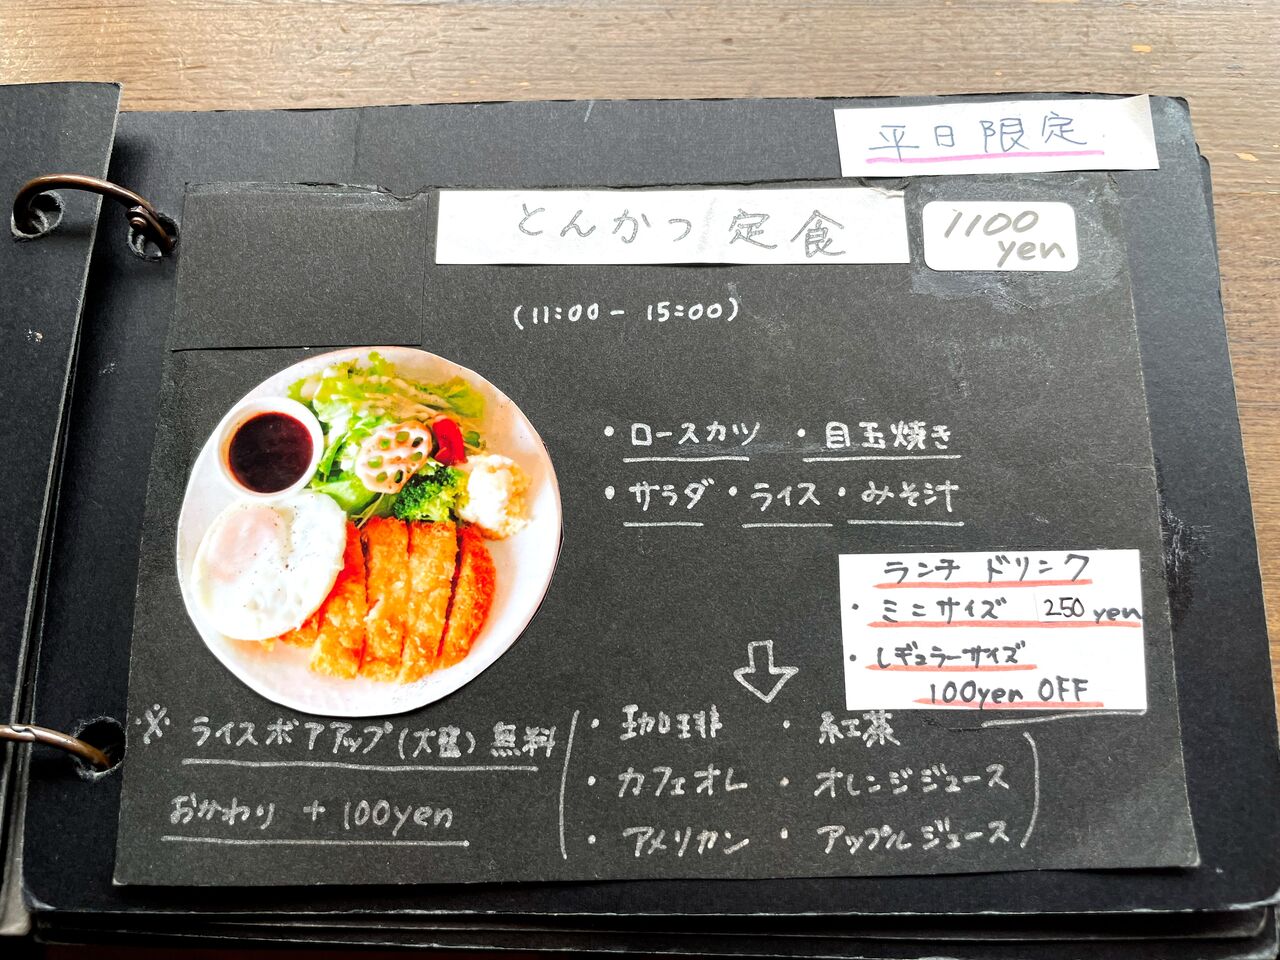 平日限定
とんかつ定食
1100
yen
(11:00 - 15:00)
・ロースカツ ・目玉焼き
・サラダ ・ライス ・みそ汁
ランチ ドリンク
・ミニサイズ 250yen
・レギュラーサイズ
100yen OFF
※ ライスボアアップ(大盛) 無料
おかわり + 100yen
・珈琲 ・紅茶
・カフェオレ ・オレンジジュース
・アメリカン ・アップルジュース